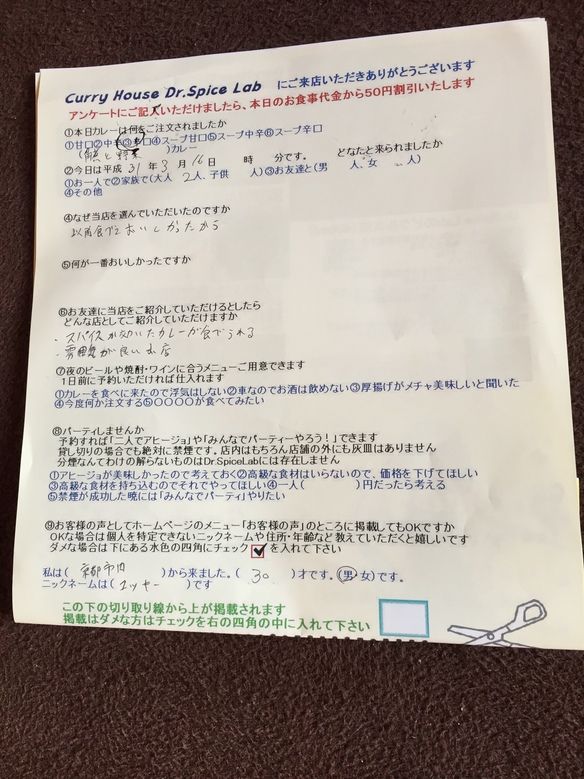 Curry House Dr.Spice Lab にご来店いただきありがとうございます
アンケートにご記入いただけましたら、本日のお食事代金から50円割引いたします
①本日カレーは何をご注文されましたか
①甘口②中辛③辛口④スープ甘口⑤スープ中辛⑥スープ辛口
( と野菜 )カレー
②今日は平成 31 年 3 月 16 日 時 分です。 どなたと来られましたか
①お一人で②家族で(大人 2 人、子供 人)③お友達と(男 人、女 人)
④その他
④なぜ当店を選んでいただいたのですか
以前食べておいしかったから
⑤何が一番おいしかったですか
⑥お友達に当店をご紹介していただけるとしたら
どんな店としてご紹介していただけますか
・スパイスが効いたカレーが食べられる
・雰囲気が良いお店
⑦夜のビールや焼酎・ワインに合うメニューご用意できます
1日前に予約いただければ仕入れます
①カレーを食べに来たので浮気はしない②車なのでお酒は飲めない③厚揚げがメチャ美味しいと聞いた
④今度何か注文する⑤〇〇〇〇が食べてみたい
⑧パーティしませんか
予約すれば「二人でアヒージョ」や「みんなでパーティーやろう!」できます
貸し切りの場合でも絶対に禁煙です。店内はもちろん店舗の外にも灰皿はありません
分煙なんてわけの解らないものはDr.SpiceLabには存在しません
①アヒージョが美味しかったので考えておく②高級な食材はいらないので、価格を下げてほしい
③高級な食材を持ち込むのでそれでやってほしい④一人( )円だったら考える
⑤禁煙が成功した暁には「みんなでパーティ」やりたい
⑨お客様の声としてホームページのメニュー「お客様の声」のところに掲載してもOKですか
OKな場合は個人を特定できないニックネームや住所・年齢など教えていただくと嬉しいです
ダメな場合は下にある水色の四角にチェック を入れて下さい
私は( 京都市内 )から来ました。( 30 )才です。(男・女)です。
ニックネームは( ユッキー )です
この下の切り取り線から上が掲載されます
掲載はダメな方はチェックを右の四角の中に入れて下さい